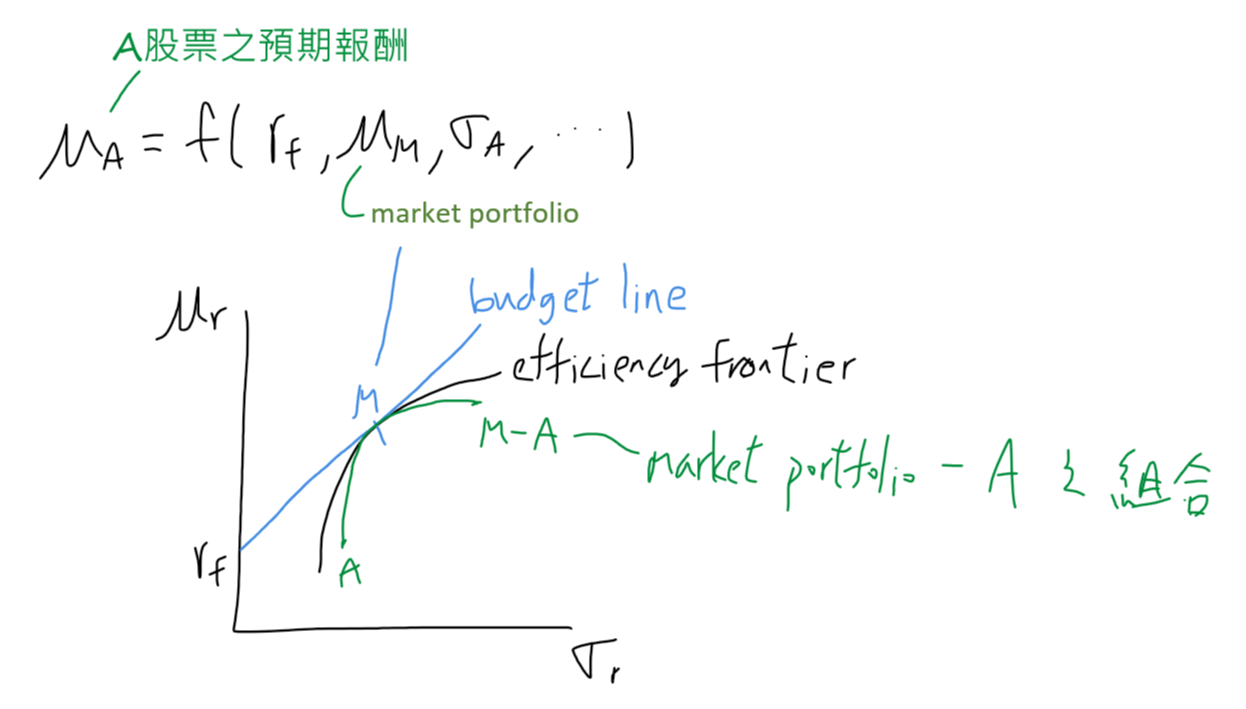 A股票之預期報酬
μ_A = f( r_f , μ_M , σ_A , ... )
market portfolio
budget line
μ_r
efficiency frontier
M
M-A
market portfolio - A 之 組合
r_f
A
σ_r